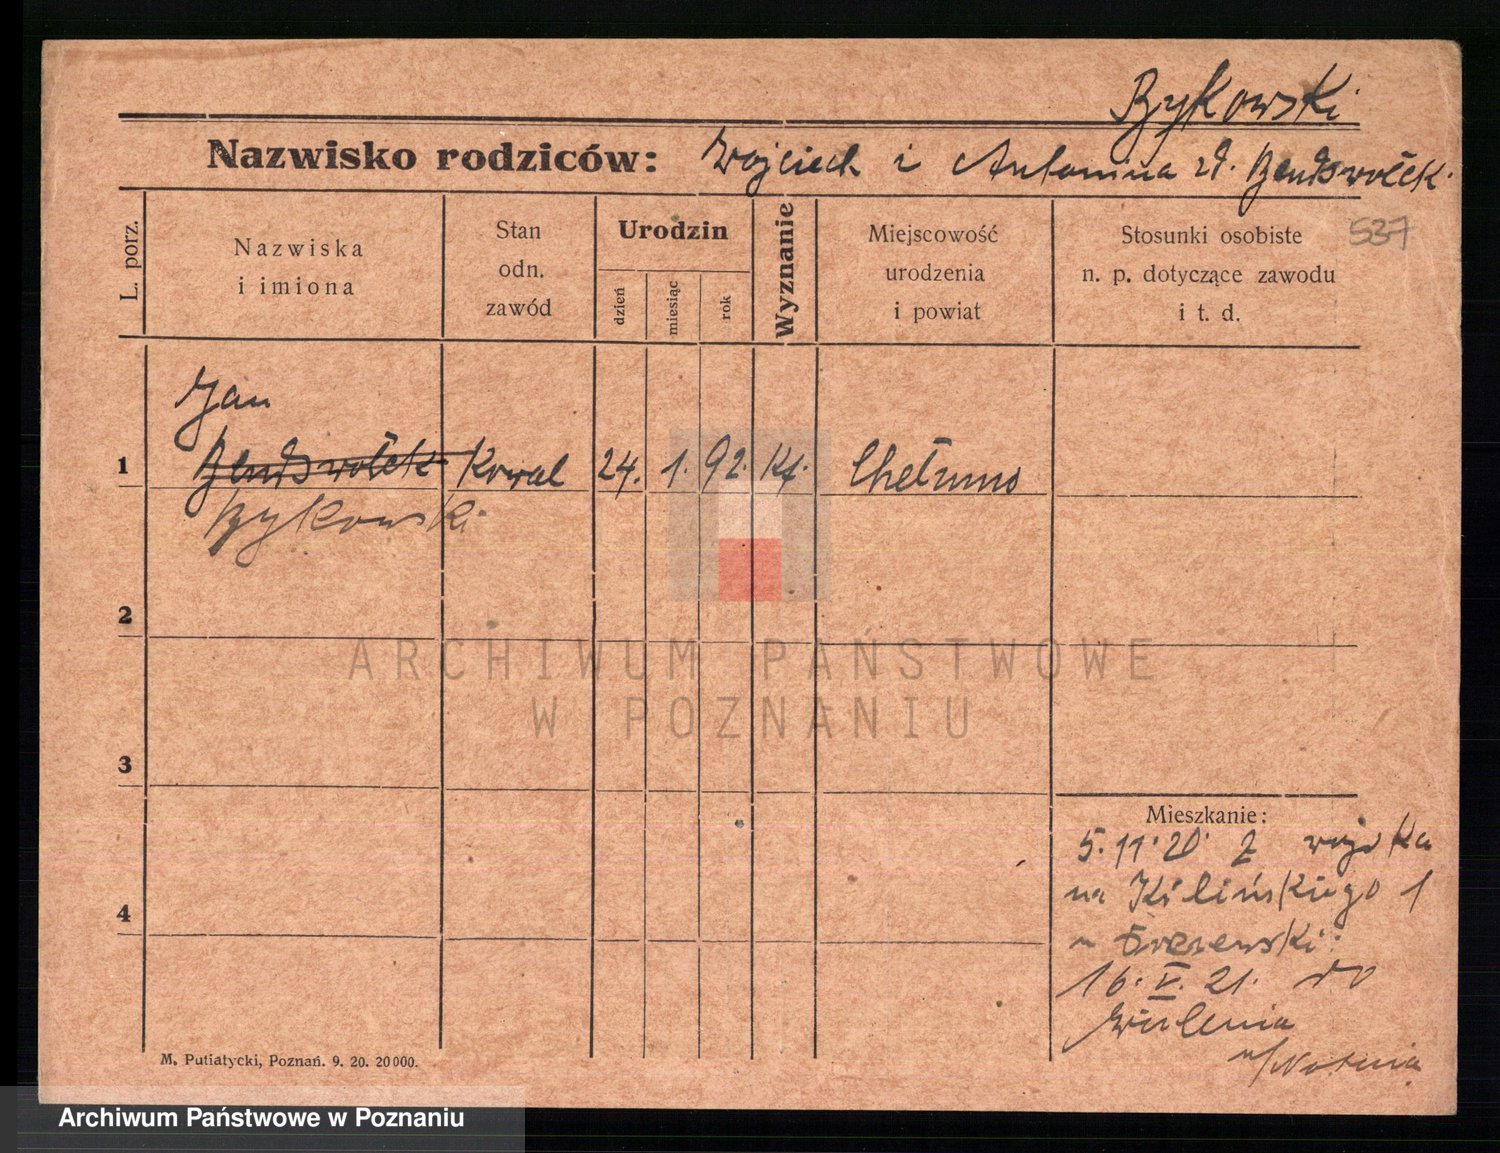 Bykowski
Nazwisko rodziców: Wojciech i Antonina
537
L. porz.
Nazwiska
i imiona
Stan
odn.
zawód
Urodzin
dzień
miesiąc
rok
Wyznanie
Miejscowość
urodzenia
i powiat
Stosunki osobiste
n. p. dotyczące zawodu
i t. d.
Jan
1 Kowal 24. 1. 92. Kt.
Bykowski
2
3
4
Mieszkanie:
5.11.20 z wojska
na Kilińskiego 1
16. V. 21. do
M. Putiatycki, Poznań. 9. 20. 20000.
ARCHIWUM PAŃSTWOWE
W POZNANIU
Archiwum Państwowe w Poznaniu